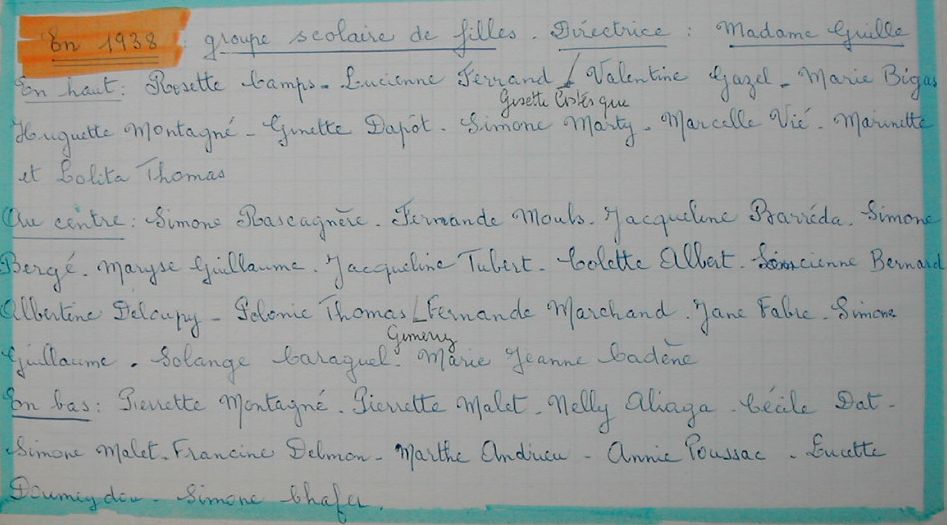 En 1938 : groupe scolaire de filles. Directrice : Madame Guille
En haut : Rosette Camps - Lucienne Ferrand / Valentine Gazel - Marie Bigas
Gisette Costesque
Huguette Montagné - Ginette Dapot. Simone Marty. Marcelle Vié. Marinette
et Lolita Thomas
Au centre : Simone Rascagnère. Fernande Mouls. Jacqueline Barréda. Simone
Bergé. Maryse Guillaume. Jacqueline Tubert. Colette Albert. Lucienne Bernard
Albertine Deloupy - Polonie Thomas / Fernande Marchand. Jane Fabre. Simone
Gimeny
Guillaume. Solange Caraguel. Marie Jeanne Cadène
En bas : Pierrette Montagné. Pierrette Malet. Nelly Aliaga. Cécile Dat -
Simone Malet. Francine Delmon - Marthe Andrieu - Annie Poussac - Lucette
Doumeydou - Simone Chafer.